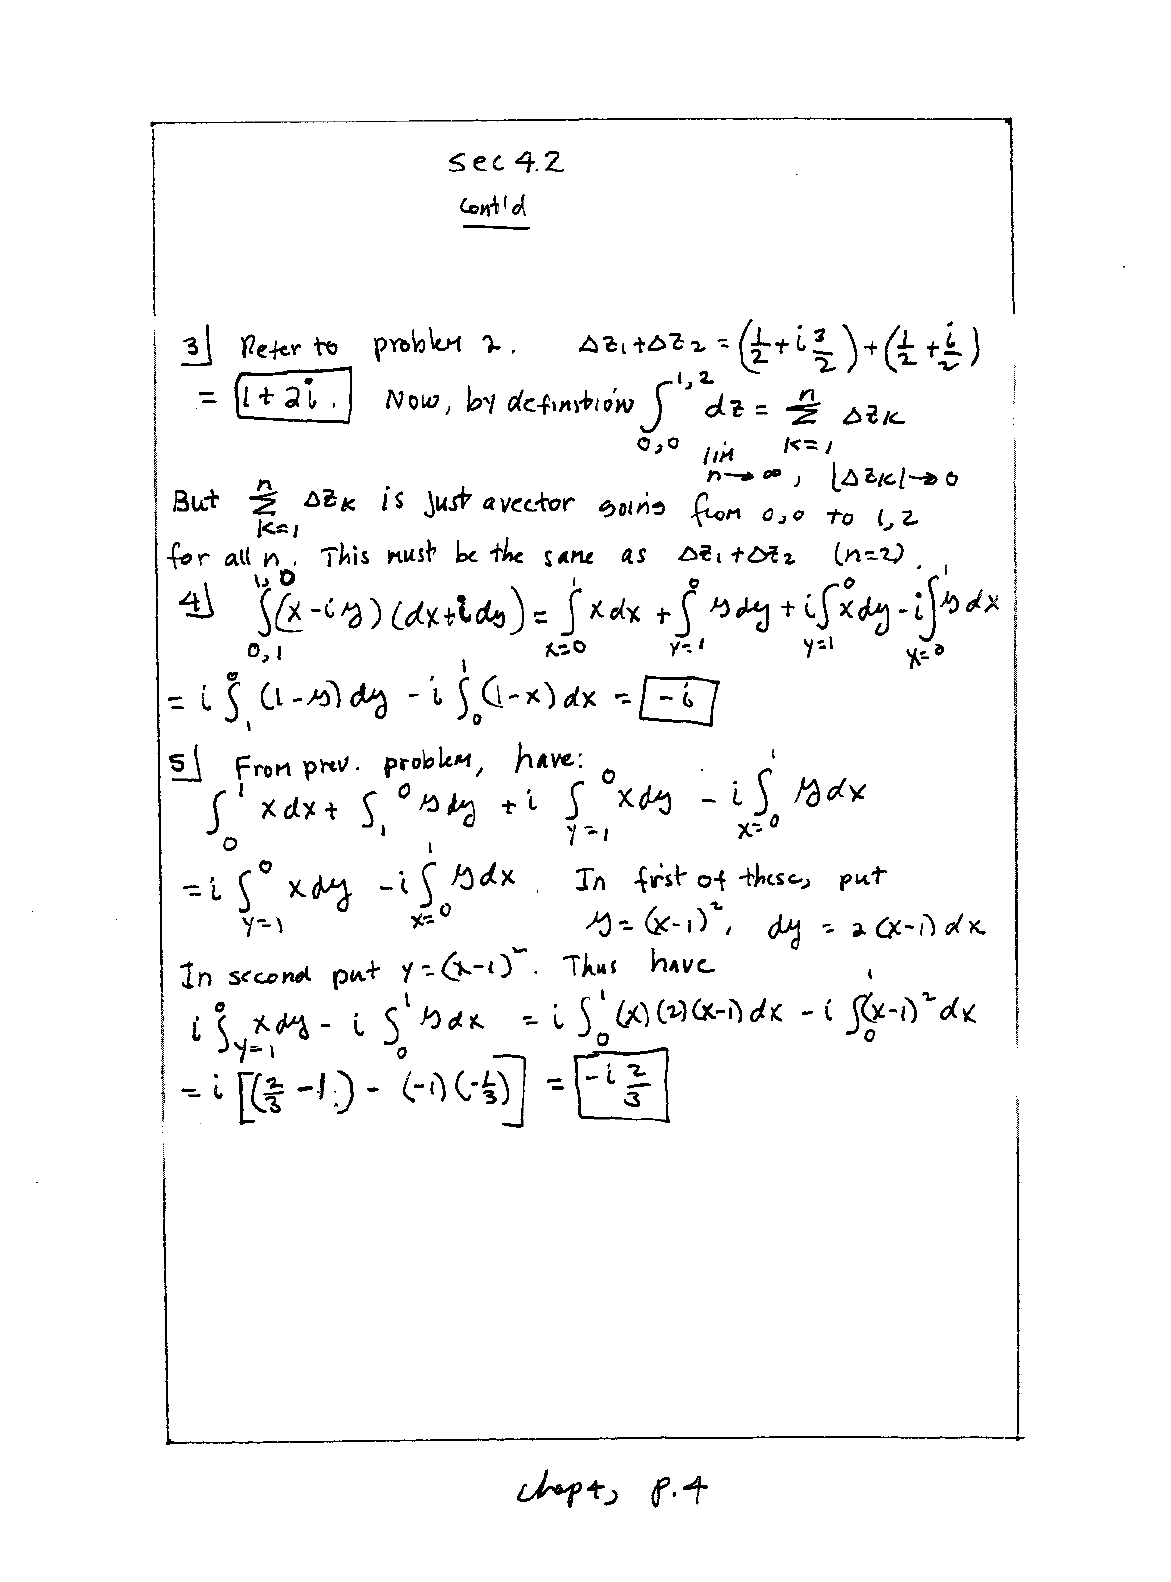 sec 4.2
cont'd
3] Refer to problem 2. Δz₁+Δz₂ = (1/2 + i 3/2) + (1/2 + i/2)
= 1+2i. Now, by definition ∫_{0,0}^{1,2} dz = lim_{n→∞, |Δz_k|→0} Σ_{k=1}^{n} Δz_k
But Σ_{k=1}^{n} Δz_k is just a vector going from 0,0 to 1,2
for all n. This must be the same as Δz₁+Δz₂ (n=2).
4] ∫_{0,1}^{1,0} (x-iy)(dx+idy) = ∫_{x=0}^{1} x dx + ∫_{y=1}^{0} y dy + i∫_{y=1}^{0} x dy - i∫_{x=0}^{1} y dx
= i ∫_{1}^{0} (1-y) dy - i ∫_{0}^{1} (1-x) dx = -i
5] From prev. problem, have:
∫_{0}^{1} x dx + ∫_{1}^{0} y dy + i ∫_{y=1}^{0} x dy - i ∫_{x=0}^{1} y dx
= i ∫_{y=1}^{0} x dy - i ∫_{x=0}^{1} y dx. In first of these, put
y = (x-1)², dy = 2(x-1) dx
In second put y = (x-1)². Thus have
i ∫_{y=1}^{0} x dy - i ∫_{0}^{1} y dx = i ∫_{0}^{1} (x)(2)(x-1) dx - i ∫_{0}^{1} (x-1)² dx
= i [(2/3 - 1) - (-1)(-1/3)] = -i 2/3
chap 4, p. 4